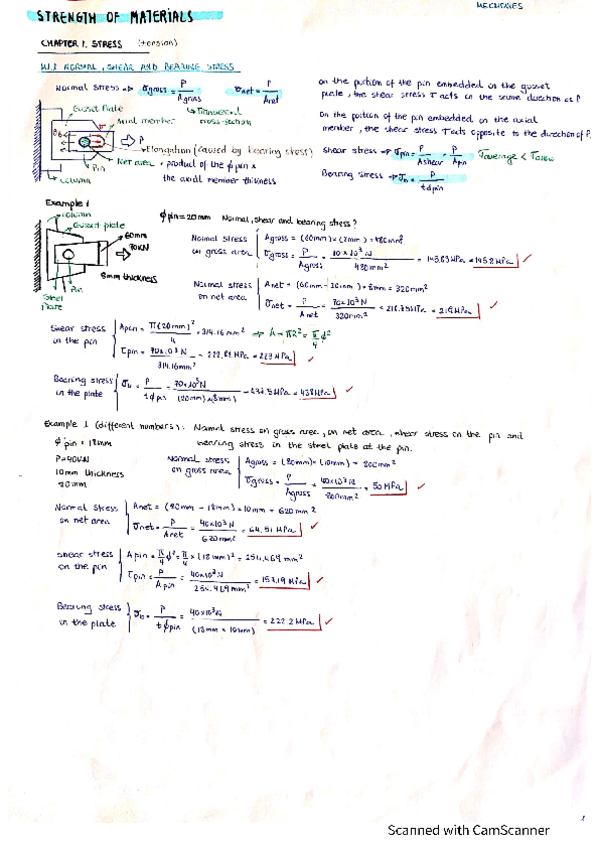 MECHANICS
STRENGTH OF MATERIALS
CHAPTER 1. STRESS (tension)
NORMAL, SHEAR AND BEARING STRESS
Normal Stress => σgross = P / Agross σnet = P / Anet
Transversal cross-section
Gusset Plate
Axial member
P
Elongation (caused by bearing stress)
Pin
Net area = product of the ϕ pin x
the axial member thickness
Column
on the portion of the pin embedded on the gusset
plate, the shear stress τ acts in the same direction as P
On the portion of the pin embedded on the axial
member, the shear stress τ acts opposite to the direction of P.
Shear stress => τpin = P / Ashear = P / Apin
Bearing stress => σb = P / t ϕpin
Example 1
Column
Gusset plate
60mm
70KN
8mm thickness
Pin
Steel Plate
ϕ pin = 20mm Normal, shear and bearing stress?
Normal stress on gross area
Agross = (60mm) x (8mm) = 480mm²
σgross = P / Agross = 70x10³N / 480mm² = 145.83MPa = 145.8 MPa ✓
Normal stress on net area
σnet = P / Anet = 70x10³N / 320mm² = 218.75MPa = 219MPa ✓
Shear stress in the pin
Apin = π(20mm)² / 4 = 314.16 mm² => A = πR² = π/4 ϕ²
τpin = 70x10³N / 314.16mm² = 222.81MPa = 223MPa ✓
Bearing stress in the plate
σb = P / t ϕpin = 70x10³N / (20mm)x(8mm) = 437.5MPa = 438MPa ✓
Example 1 (different numbers): Normal stress on gross area, on net area, shear stress on the pin and
bearing stress in the steel plate at the pin.
ϕ pin = 18mm
P=40KN
10mm thickness
Normal stress on gross area
Agross = (80mm)x(10mm) = 800mm²
σgross = P / Agross = 40x10³N / 800mm² = 50MPa ✓
Normal Stress on net area
Anet = (80mm - 18mm) x 10mm = 620mm²
σnet = P / Anet = 40x10³N / 620mm² = 64.51 MPa ✓
shear stress on the pin
Apin = π/4 ϕ² = π/4 x (18mm)² = 254.469 mm²
τpin = P / Apin = 40x10³N / 254.469mm² = 157.19 MPa ✓
Bearing stress in the plate
σb = P / t ϕpin = 40x10³N / (18mm x 10mm) = 222.2 MPa ✓
Scanned with CamScanner